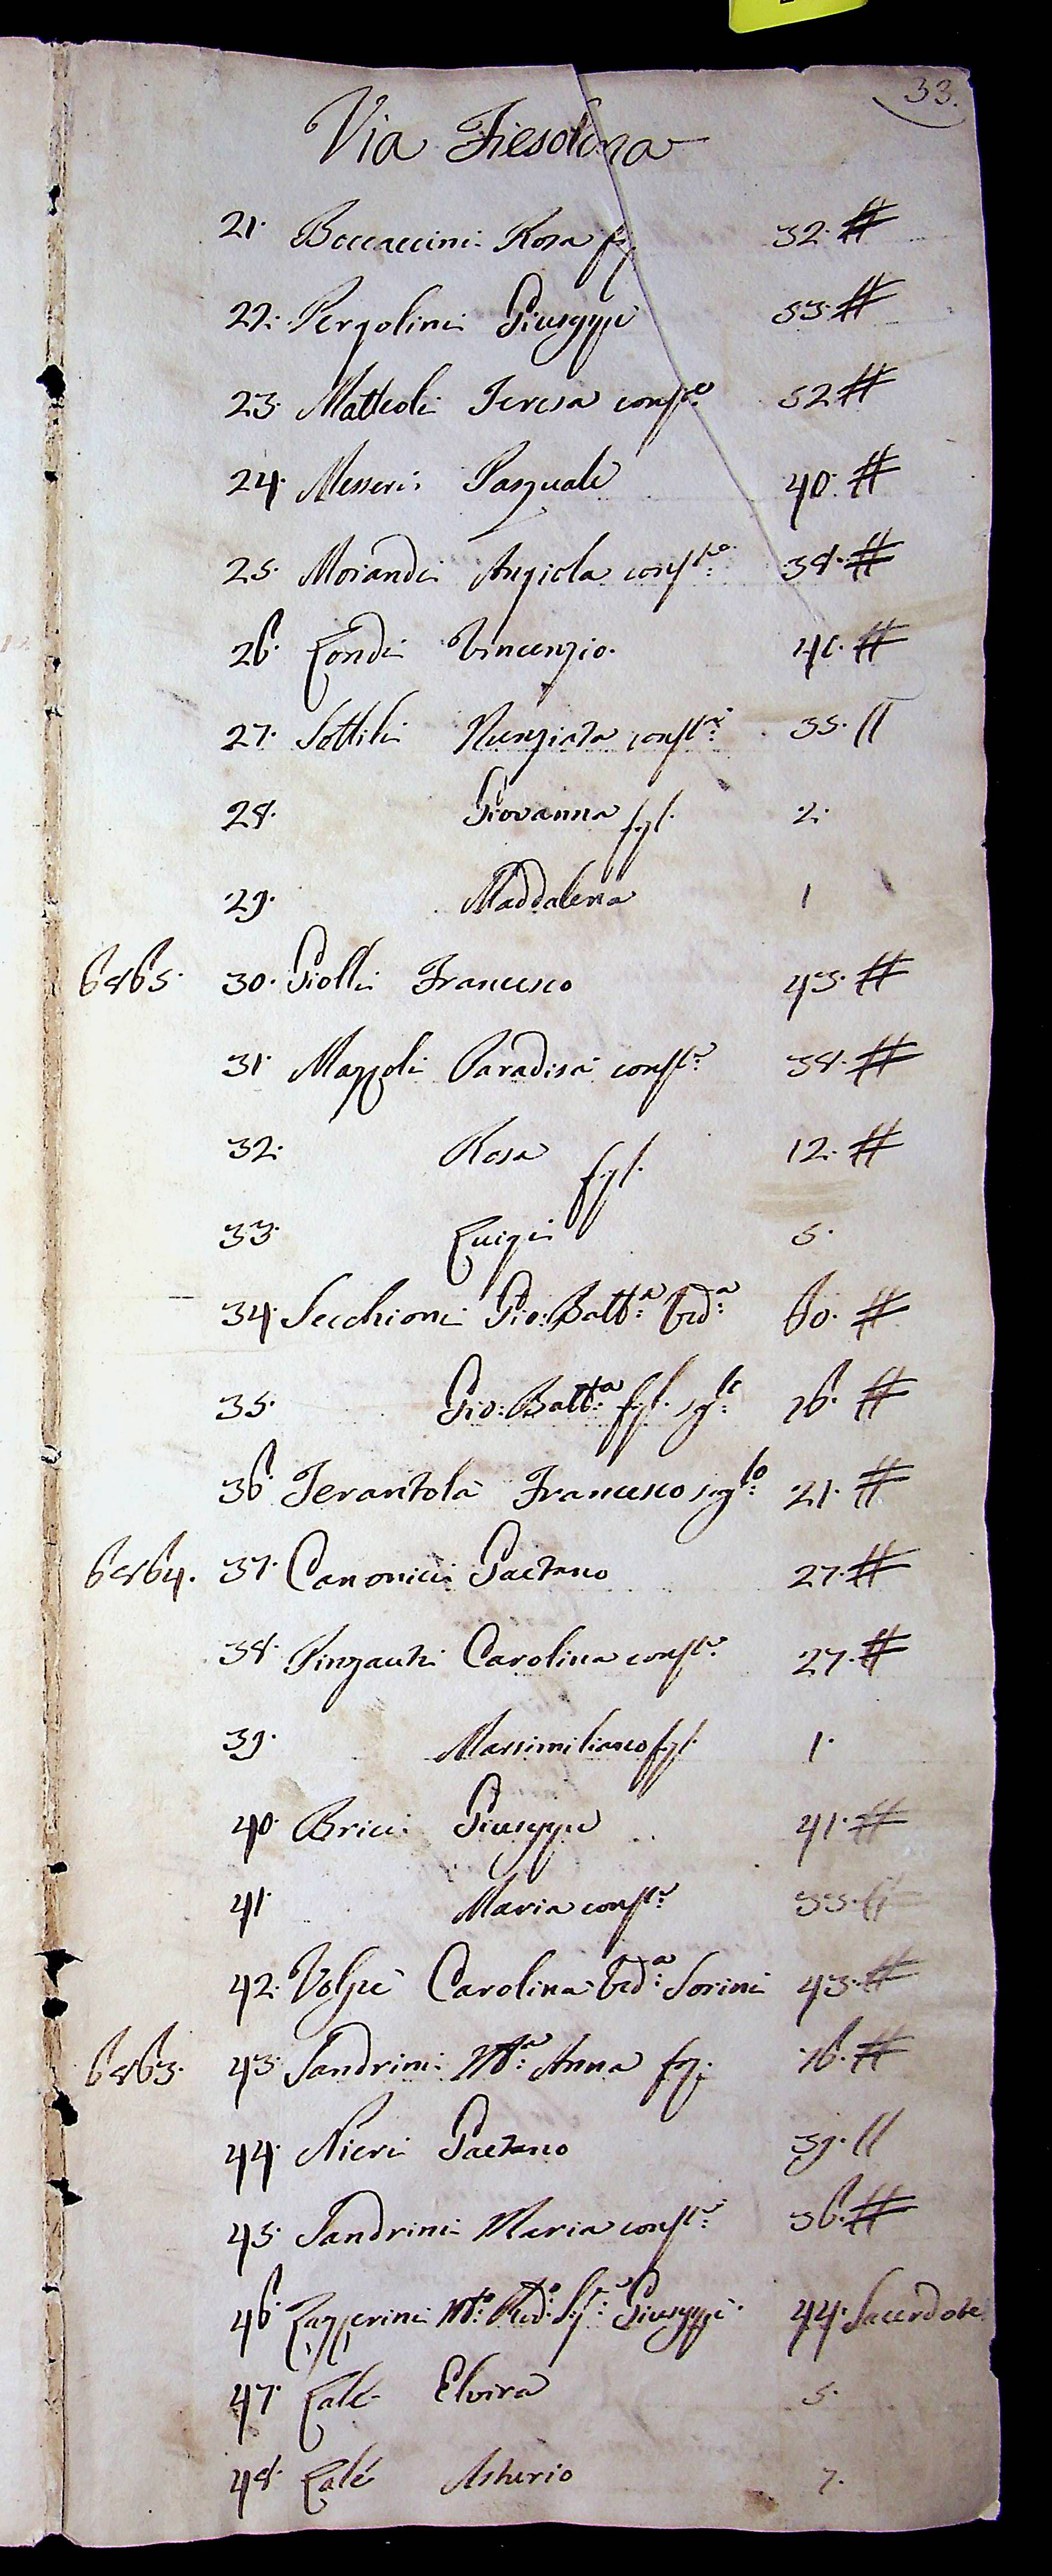 33.
Via Fiesolana
21. Boccaccini Rosa fg. 32. #
22. Pergolini Giuseppe 33. #
23. Matteoli Teresa conste 32 #
24. Messeri Pasquale 40. #
25. Morandi Angiola consta 38. #
26. Londi Vincenzio. 41. #
27. Sottili Nunziata consta 35. //
28. Giovanna figl. 2.
29. Maddalena 1
6865. 30. Giolli Francesco 43. #
31. Mazzoli Paradisa consta 38. #
32. Rosa figl. 12. #
33. Luigi 5.
34 Secchioni Gio: Batta: Vda: 60. #
35. Gio: Batta: figl. 26. #
36. Terantola Francesco 21. #
6864. 37. Canonici Gaetano 27. #
38. Pinzauti Carolina consta 27. #
39. Massimiliano figl. 1.
40. Brici Giuseppe 41. #
41. Maria consta: 33.
42. Volpi Carolina Vda: Sorini 43. #
6863. 43. Sandrini Ma: Anna fg. 76. #
44. Nieri Gaetano 39. //
45. Sandrini Maria consta: 36. #
46. Zazzerini Mto: Rdo: Sigre: Giuseppe 44. Sacerdote
47. Lalé Elvira 5.
48. Lalé Asturio 7.